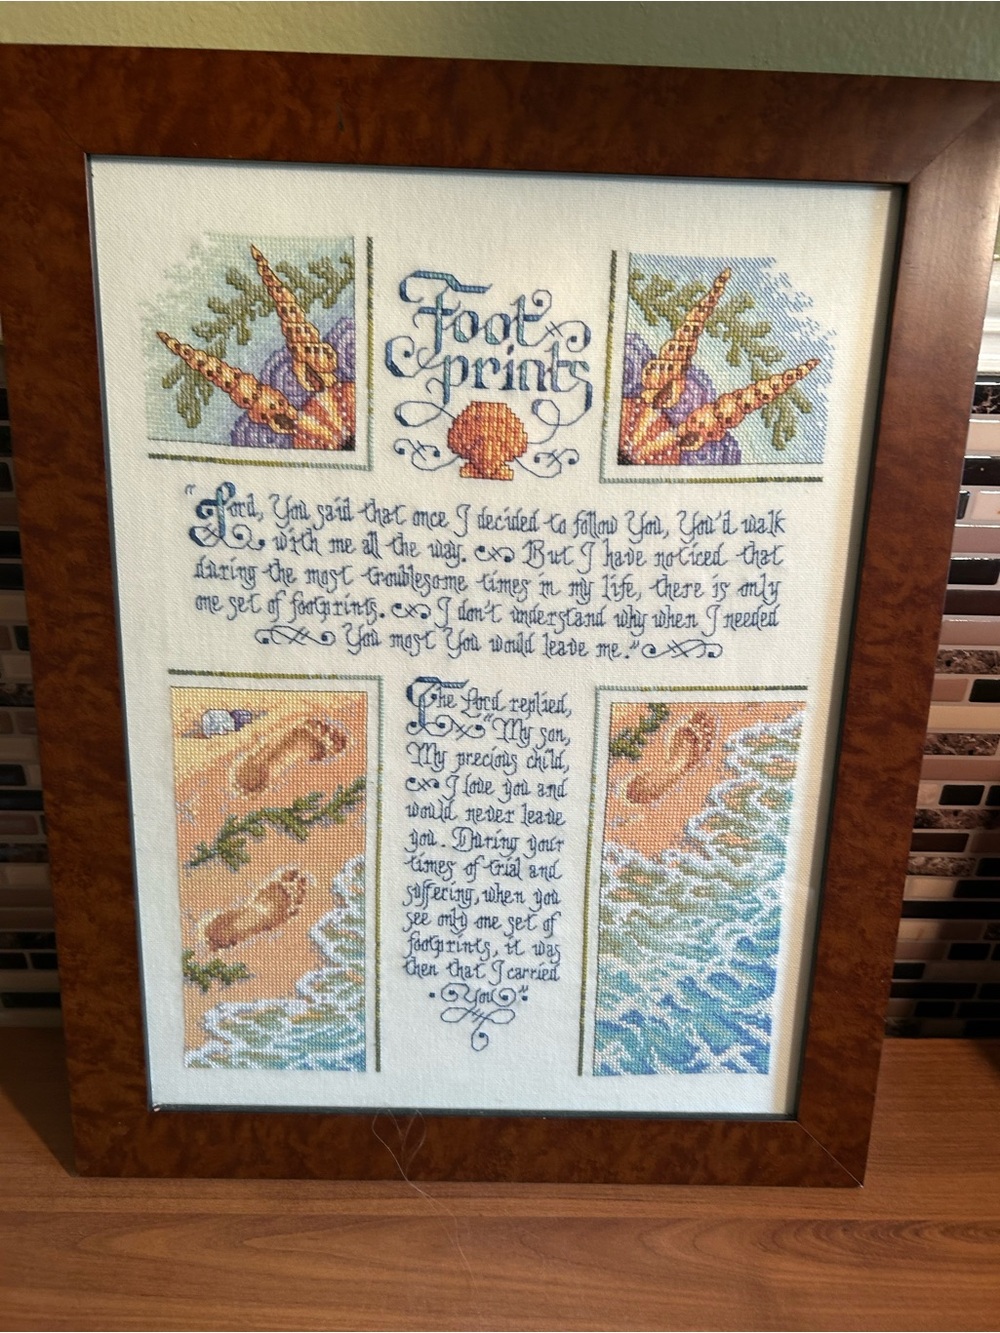 Foot
prints
"Lord, You said that once I decided to follow You, You'd walk
with me all the way. But I have noticed that
during the most troublesome times in my life, there is only
one set of footprints. I don't understand why when I needed
You most You would leave me."
The Lord replied,
"My son,
My precious child,
I love you and
would never leave
you. During your
times of trial and
suffering, when you
see only one set of
footprints, it was
then that I carried
You"